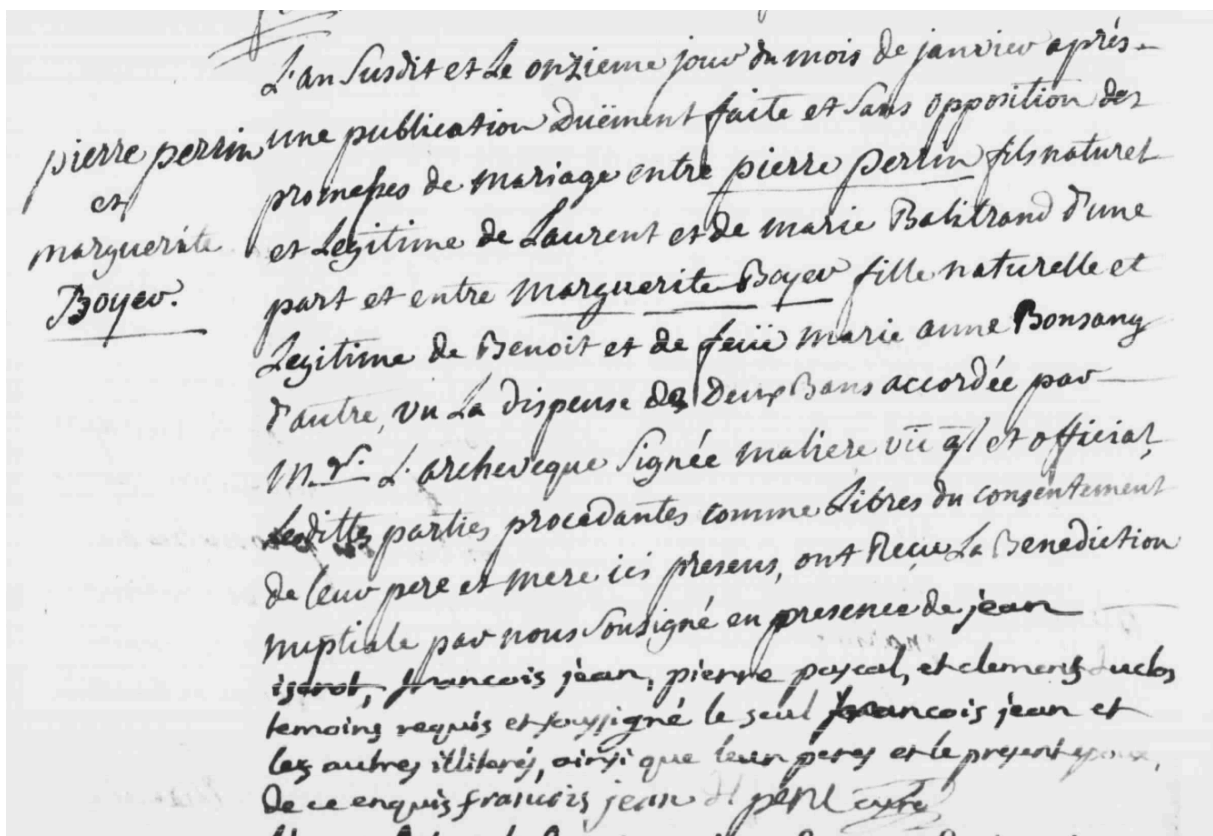 pierre perrin
et
marguerite
Boyer.
L'an Susdit et Le onzieme jour du mois de janvier aprés
une publication duëment faite et Sans opposition des
promesses de mariage entre pierre perrin fils naturel
et Legitime de Laurent et de marie Balitrand d'une
part et entre marguerite Boyer fille naturelle et
Legitime de Benoit et de feüe marie anne Bonsang
d'autre, vu La dispense des Deux Bans accordée par
M.gr. L'archeveque Signée maliere vic gl et official,
Lesdittes parties procedantes comme Libres du consentement
de leur pere et mere ici presens, ont Reçu La Benediction
nuptiale par nous Sousigné en presence de jean
francois jean, pierre pascal, et clement duclos
temoins requis et soussigné le seul francois jean et
les autres illiterés, ainsi que leur peres et le present epoux,
de ce enquis francois jean